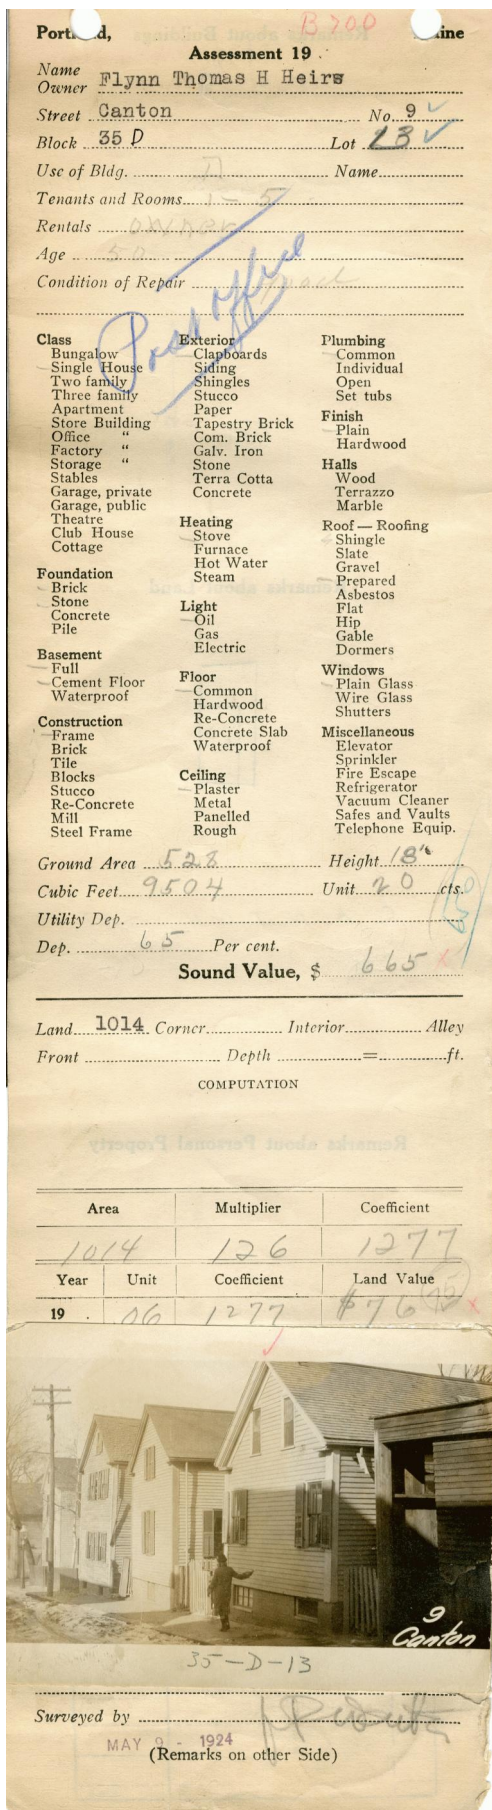 Portland, Maine
B 700
Assessment 19 .
Name
Owner Flynn Thomas H Heirs
Street Canton No. 9
Block 35 D Lot 13
Use of Bldg. Name
Tenants and Rooms 1 - 5
Rentals owner
Age 50
Condition of Repair
Class
Bungalow
Single House
Two family
Three family
Apartment
Store Building
Office "
Factory "
Storage "
Stables
Garage, private
Garage, public
Theatre
Club House
Cottage
Foundation
Brick
Stone
Concrete
Pile
Basement
Full
Cement Floor
Waterproof
Construction
Frame
Brick
Tile
Blocks
Stucco
Re-Concrete
Mill
Steel Frame
Exterior
Clapboards
Siding
Shingles
Stucco
Paper
Tapestry Brick
Com. Brick
Galv. Iron
Stone
Terra Cotta
Concrete
Heating
Stove
Furnace
Hot Water
Steam
Light
Oil
Gas
Electric
Floor
Common
Hardwood
Re-Concrete
Concrete Slab
Waterproof
Ceiling
Plaster
Metal
Panelled
Rough
Plumbing
Common
Individual
Open
Set tubs
Finish
Plain
Hardwood
Halls
Wood
Terrazzo
Marble
Roof — Roofing
Shingle
Slate
Gravel
Prepared
Asbestos
Flat
Hip
Gable
Dormers
Windows
Plain Glass
Wire Glass
Shutters
Miscellaneous
Elevator
Sprinkler
Fire Escape
Refrigerator
Vacuum Cleaner
Safes and Vaults
Telephone Equip.
Ground Area 528 Height 18'
Cubic Feet 9504 Unit 20 cts.
Utility Dep.
Dep. 65 Per cent.
Sound Value, $ 665
Land 1014 Corner Interior Alley
Front Depth = ft.
COMPUTATION
Area Multiplier Coefficient
1014 126 1277
Year Unit Coefficient Land Value
19 . 06 1277 $76
9
Canton
35-D-13
Surveyed by
MAY 9 - 1924
(Remarks on other Side)